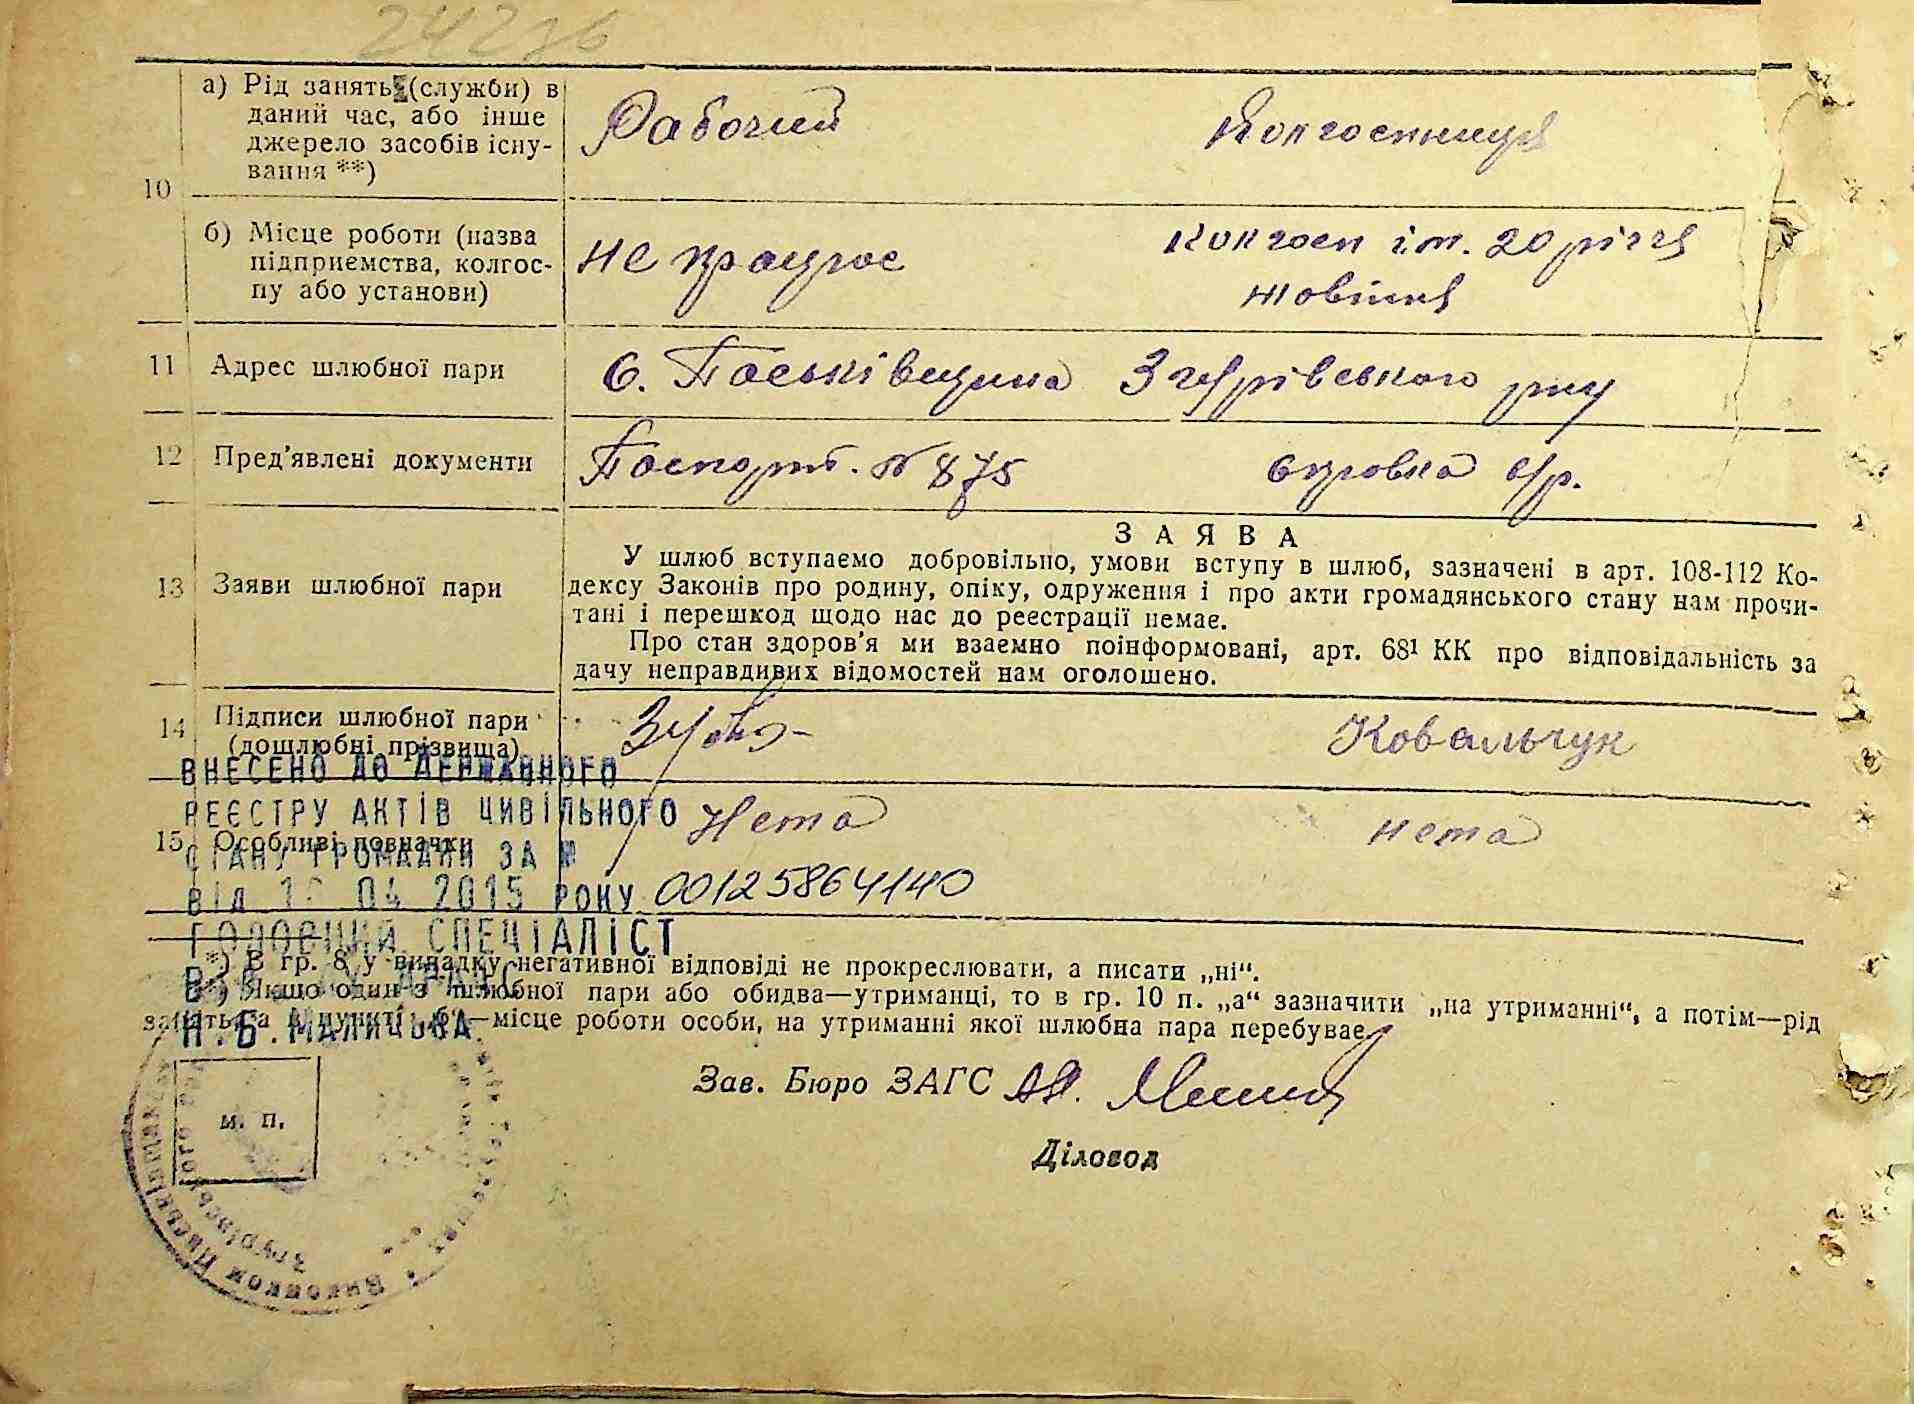 а) Рід занять (служби) в
даний час, або інше
джерело засобів існу-
вання **)
Рабочий
Колгоспниця
10
б) Місце роботи (назва
підприємства, колгос-
пу або установи)
не працює
колгосп ім. 20 річчя
жовтня
11 Адрес шлюбної пари
с. Паськівщина Згурівського р-ну
12 Пред'явлені документи
Паспорт. № 875
справка с/р.
ЗАЯВА
13 Заяви шлюбної пари
У шлюб вступаємо добровільно, умови вступу в шлюб, зазначені в арт. 108-112 Ко-
дексу Законів про родину, опіку, одруження і про акти громадянського стану нам прочи-
тані і перешкод щодо нас до реєстрації немає.
Про стан здоров'я ми взаємно поінформовані, арт. 68¹ КК про відповідальність за
дачу неправдивих відомостей нам оголошено.
14 Підписи шлюбної пари
(дошлюбні прізвища)
Ковальчук
ВНЕСЕНО ДО ДЕРЖАВНОГО
РЕЄСТРУ АКТІВ ЦИВІЛЬНОГО
Нета
нета
15 Особливі позначки
СТАНУ ГРОМАДЯН ЗА №
ВІД 04 2015 РОКУ 00125864140
ГОЛОВНИЙ СПЕЦІАЛІСТ
*) В гр. 8 у випадку негативної відповіді не прокреслювати, а писати „ні“.
**) Якщо один з шлюбної пари або обидва—утриманці, то в гр. 10 п. „а“ зазначити „на утриманні“, а потім—рід
занять, а в пункті „б“—місце роботи особи, на утриманні якої шлюбна пара перебуває.
Н.Б.
Зав. Бюро ЗАГС
м. п.
Діловод
Виконком Паськівщинської
Згурівського